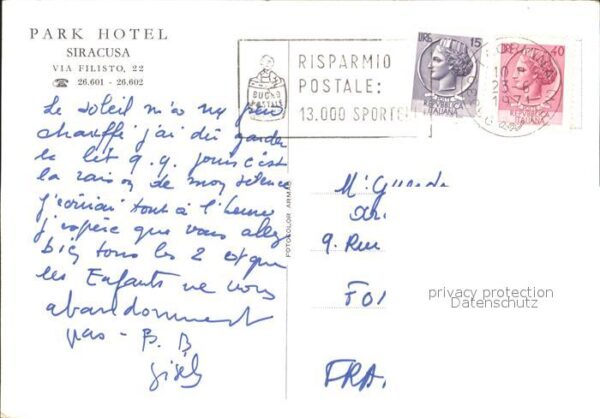 PARK HOTEL
SIRACUSA
VIA FILISTO, 22
☎ 26.601 - 26.602
Le soleil m'a un peu
chauffé j'ai dû garder
le lit q.q. jours c'est
la raison de mon silence
j'écrirai tout à l'heure
j'espère que vous allez
bien tous les 2 et que
les Enfants ne vous
abandonnent
pas - B. B
BUONO
POSTALE
RISPARMIO
POSTALE:
13.000 SPORTELLI
LIRE 15
REPUBBLICA
ITALIANA
LIRE 40
REPUBBLICA
ITALIANA
10
23-6
1971
FOTOCOLOR ARMAS
9. Rue
FOI
FRA.
privacy protection
Datenschutz